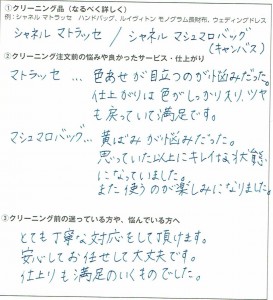 ①クリーニング品（なるべく詳しく）
例：シャネル マトラッセ ハンドバッグ、ルイヴィトン モノグラム長財布、ウェディングドレス
シャネル マトラッセ / シャネル マシュマロバッグ
(キャンバス)
②クリーニング注文前の悩みや良かったサービス・仕上がり
マトラッセ … 色あせが目立つのが悩みだった。
仕上がりは色がしっかり入り、ツヤ
も戻っていて満足です。
マシュマロバッグ … 黄ばみが悩みだった。
思っていた以上にキレイな状態
になっていました。
また使うのが楽しみになりました。
③クリーニング前の迷っている方や、悩んでいる方へ
とても丁寧な対応をして頂けます。
安心してお任せして大丈夫です。
仕上りも満足のいくものでした。